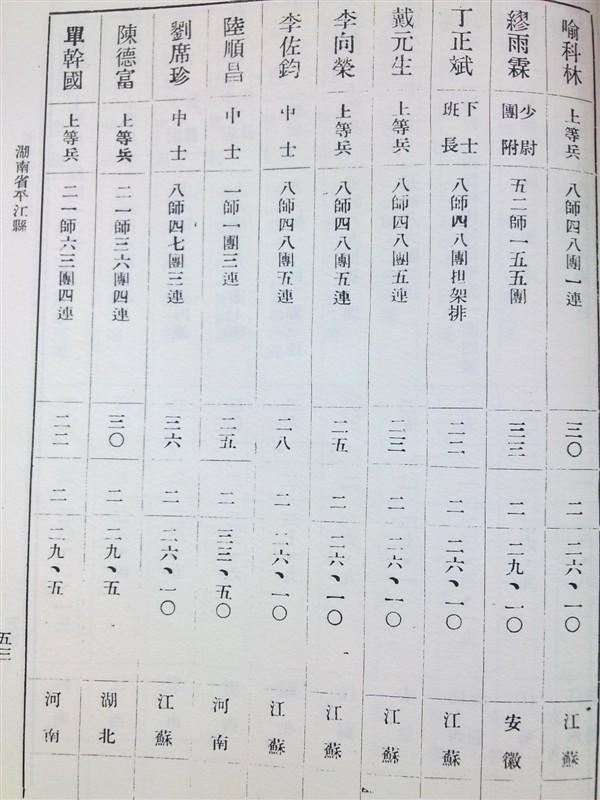 喻科林 上等兵 八師四八團一連 三〇 二 二六、一〇 江蘇
繆雨霖 少尉團附 五二師一五五團 三三 二 二九、一〇 安徽
丁正斌 下士班長 八師四八團担架排 二二 二 二六、一〇 江蘇
戴元生 上等兵 八師四八團五連 二三 二 二六、一〇 江蘇
李向榮 上等兵 八師四八團五連 二五 二 二六、一〇 江蘇
李佐鈞 中士 八師四八團五連 二八 二 二六、一〇 江蘇
陸順昌 中士 一師一團三連 二五 二 三三、五〇 河南
劉席珍 中士 八師四七團三連 三六 二 二六、一〇 江蘇
陳德富 上等兵 二一師三六團四連 三〇 二 二九、五 湖北
單幹國 上等兵 二一師六三團四連 二二 二 二九、五 河南
湖南省平江縣
五三